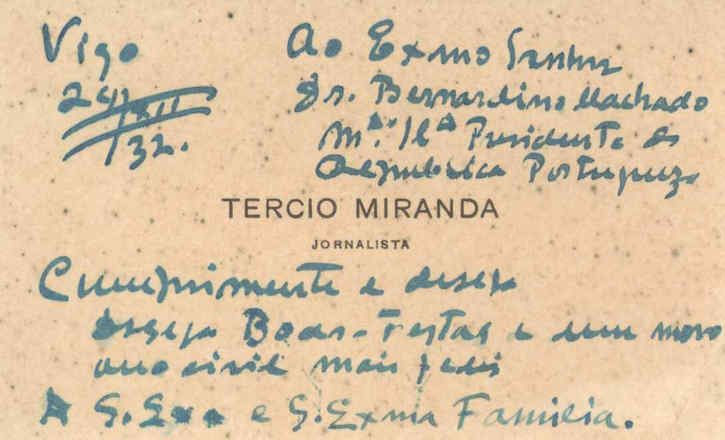 Vigo
24/XII
/32.
Ao Exmo Senhor
Dr. Bernardino Machado
Presidente da
Republica Portugueza
TERCIO MIRANDA
JORNALISTA
Cumprimenta e deseja
deseja Boas-Festas e um novo
ano civil mais feliz
A S. Exa e S. Exma Familia.